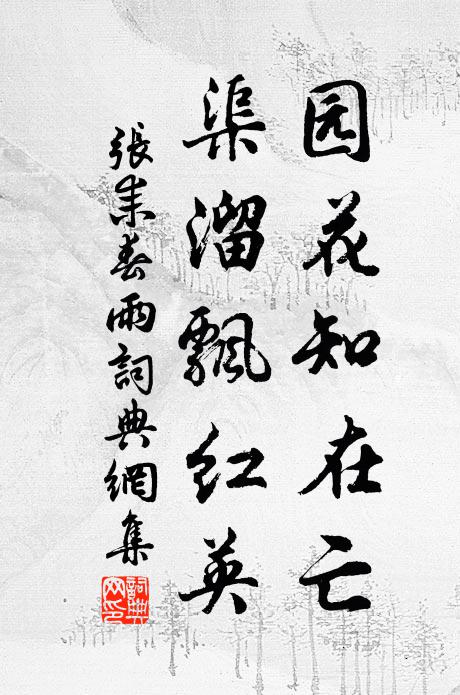 园花知在亡
渠溜飘红英
張耒春雨詞典網集
詞典网印